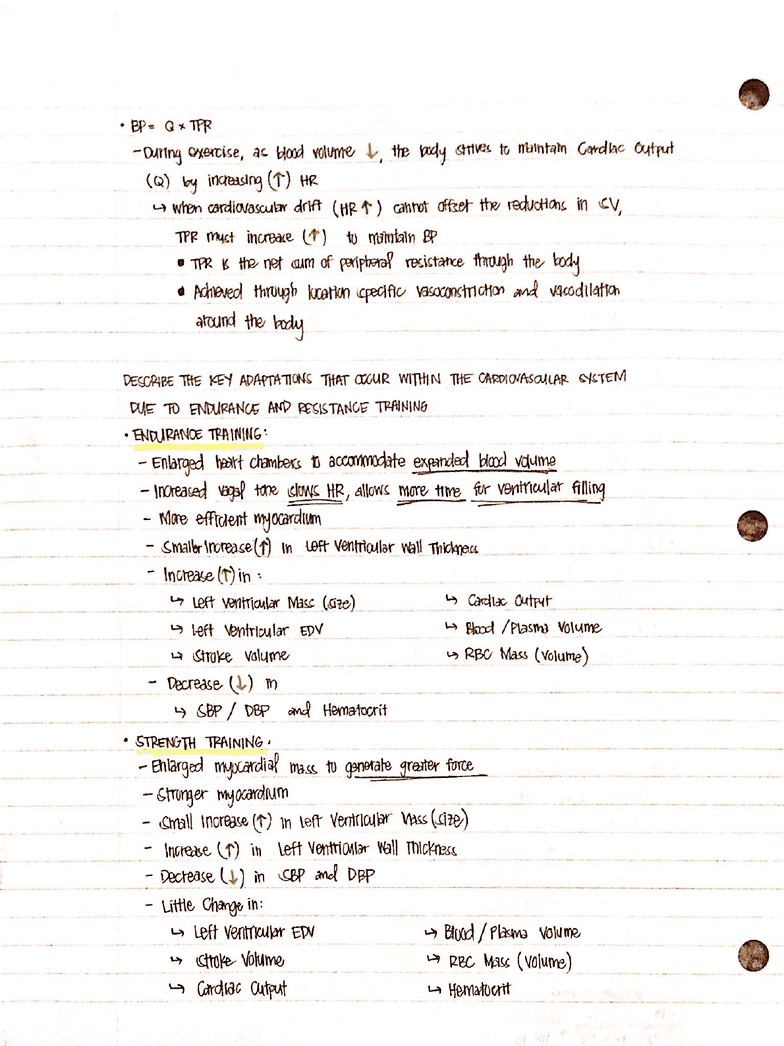 • BP = Q × TPR
- During exercise, as blood volume ↓, the body strives to maintain Cardiac Output
(Q) by increasing (↑) HR
↳ when cardiovascular drift (HR ↑) cannot offset the reductions in SV,
TPR must increase (↑) to maintain BP
▪ TPR is the net sum of peripheral resistance through the body
▪ Achieved through location specific vasoconstriction and vasodilation
around the body
DESCRIBE THE KEY ADAPTATIONS THAT OCCUR WITHIN THE CARDIOVASCULAR SYSTEM
DUE TO ENDURANCE AND RESISTANCE TRAINING
• ENDURANCE TRAINING:
- Enlarged heart chambers to accommodate expanded blood volume
- Increased vagal tone slows HR, allows more time for ventricular filling
- More efficient myocardium
- Smaller Increase (↑) in Left Ventricular Wall Thickness
- Increase (↑) in:
↳ Left Ventricular Mass (size) ↳ Cardiac Output
↳ Left Ventricular EDV ↳ Blood / Plasma Volume
↳ Stroke Volume ↳ RBC Mass (Volume)
- Decrease (↓) in
↳ SBP / DBP and Hematocrit
• STRENGTH TRAINING:
- Enlarged myocardial mass to generate greater force
- Stronger myocardium
- Small Increase (↑) in Left Ventricular Mass (size)
- Increase (↑) in Left Ventricular Wall Thickness
- Decrease (↓) in SBP and DBP
- Little Change in:
↳ Left Ventricular EDV ↳ Blood / Plasma Volume
↳ Stroke Volume ↳ RBC Mass (Volume)
↳ Cardiac Output ↳ Hematocrit